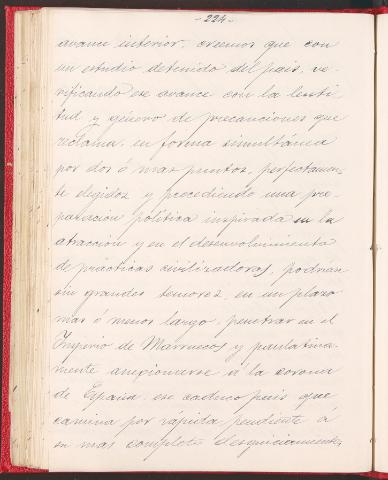 -224-
avance interior, creemos que con
un estudio detenido del pais, ve-
rificando ese avance con la lenti-
tud y género de precauciones que
reclama, en forma simultánea
por dos ó mas puntos, perfectamen-
te elegidos y precediendo una pre-
paracion política inspirada en la
atraccion y en el desenvolvimiento
de prácticas civilizadoras, podrian
sin grandes temores, en un plazo
mas ó menos largo, penetrar en el
Imperio de Marruecos y paulativa-
mente anexionarse á la corona
de España, ese caduco pais que
camina por rápida pendiente á
su mas completo desquiciamiento,